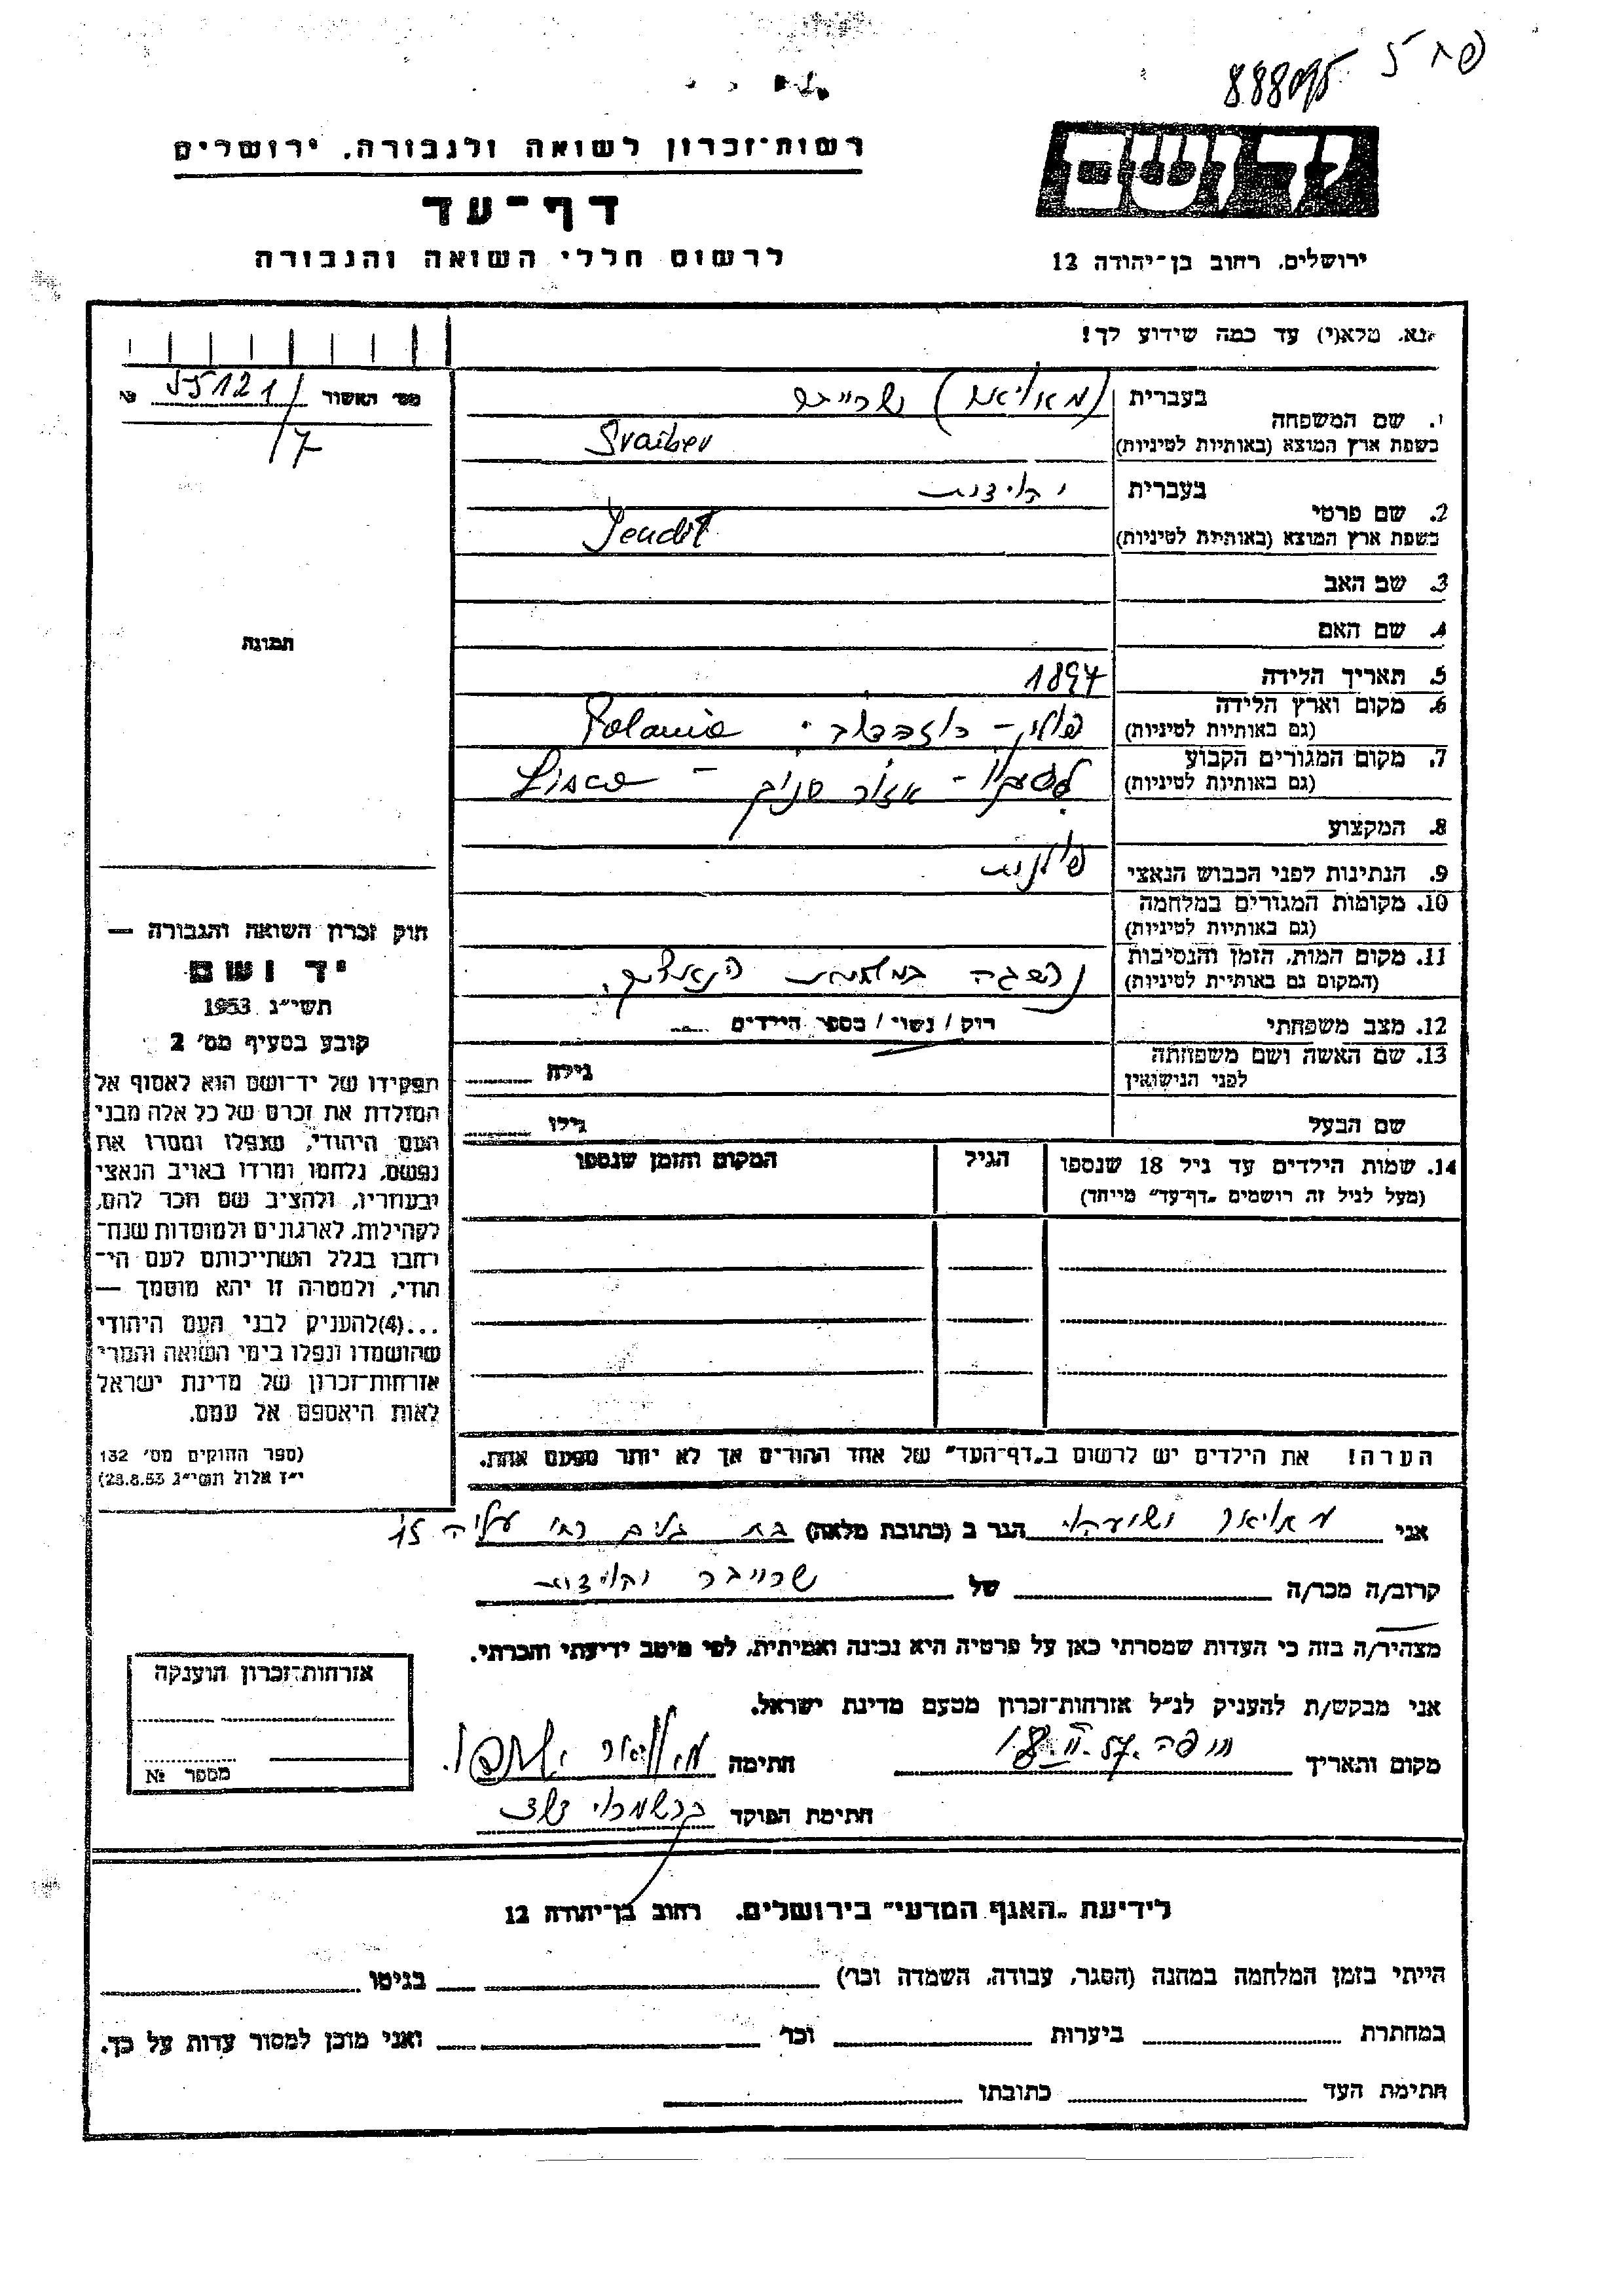 888095
רשות־זכרון לשואה ולגבורה, ירושלים
דף־עד
לרשום חללי השואה והגבורה
יד ושם
ירושלים, רחוב בן־יהודה 12
נא מלא(י) עד כמה שידוע לך!
מס' האשור 55121/ №
7
1. שם המשפחה
בעברית שרייבר
בשפת ארץ המוצא (באותיות לטיניות) Sraiber
2. שם פרטי
בעברית יהודית
בשפת ארץ המוצא (באותיות לטיניות) Jeudit
3. שם האב
4. שם האם
5. תאריך הלידה 1897
6. מקום וארץ הלידה פולין - Polania
(גם באותיות לטיניות)
7. מקום המגורים הקבוע - אזור סנוק - Lisco
(גם באותיות לטיניות)
8. המקצוע
9. הנתינות לפני הכבוש הנאצי פולנית
10. מקומות המגורים במלחמה
(גם באותיות לטיניות)
11. מקום המות, הזמן והנסיבות נספתה
(המקום גם באותיות לטיניות)
12. מצב משפחתי רוק / נשוי / מספר הילדים
13. שם האשה ושם משפחתה
לפני הנישואין גילה
שם הבעל גילו
14. שמות הילדים עד גיל 18 שנספו הגיל המקום והזמן שנספו
(מעל לגיל זה רושמים „דף־עד” מיוחד)
הערה! את הילדים יש לרשום ב„דף־העד” של אחד ההורים אך לא יותר מפעם אחת.
תמונה
חוק זכרון השואה והגבורה —
יד ושם
תשי"ג 1953
קובע בסעיף מס' 2
תפקידו של יד־ושם הוא לאסוף אל
המולדת את זכרם של כל אלה מבני
העם היהודי, שנפלו ומסרו את
נפשם, נלחמו ומרדו באויב הנאצי
ובעוזריו, ולהציב שם וזכר להם,
לקהילות, לארגונים ולמוסדות שנח־
רבו בגלל השתייכותם לעם הי־
הודי, ולמטרה זו יהא מוסמך —
...(4)להעניק לבני העם היהודי
שהושמדו ונפלו בימי השואה והמרי
אזרחות־זכרון של מדינת ישראל
לאות היאספם אל עמם.
(ספר החוקים מס' 132
י"ז אלול תשי"ג 28.8.53)
אני הגר ב (כתובת מלאה) בת גלים רח' עליה 15
קרוב/ה מכר/ה של שרייבר יהודית
מצהיר/ה בזה כי העדות שמסרתי כאן על פרטיה היא נכונה ואמיתית, לפי מיטב ידיעתי והכרתי.
אני מבקש/ת להעניק לנ"ל אזרחות־זכרון מטעם מדינת ישראל.
מקום ותאריך חיפה חתימה
חתימת הפוקד
אזרחות־זכרון הוענקה
מספר №
לידיעת „האגף המדעי” בירושלים, רחוב בן־יהודה 12
הייתי בזמן המלחמה במחנה (הסגר, עבודה, השמדה וכו') בגיטו
במחתרת ביערות וכו' ואני מוכן למסור עדות על כך.
חתימת העד כתובתו